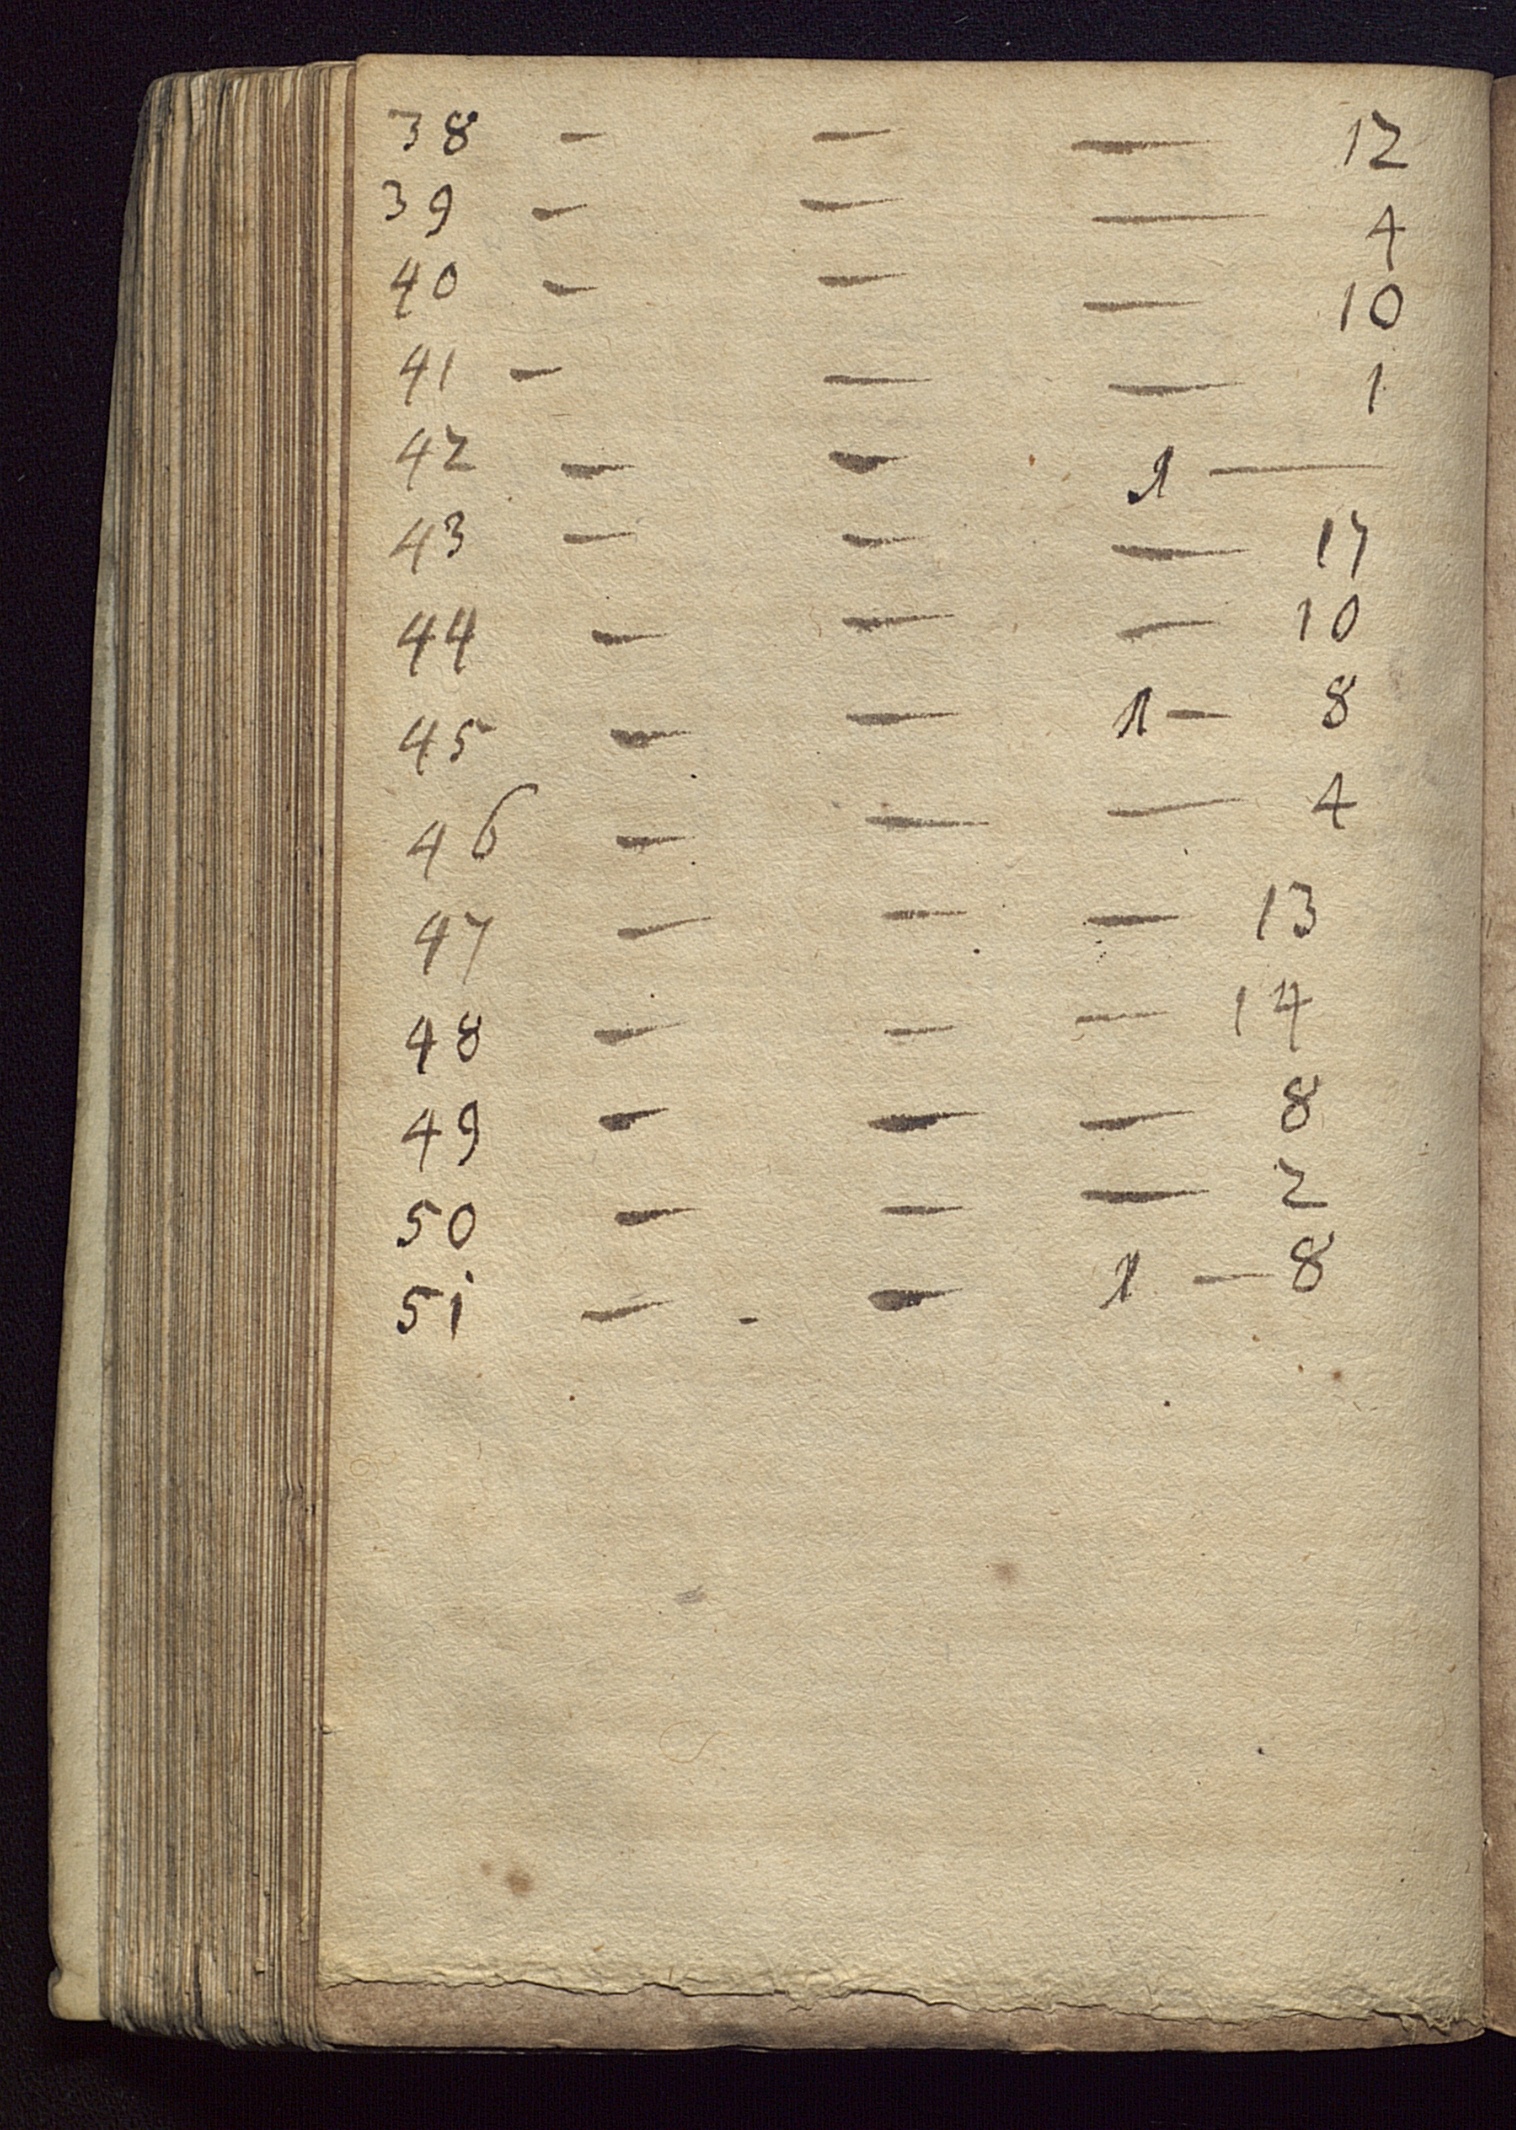 38 - - - 12
39 - - - 4
40 - - - 10
41 - - - 1
42 - - 1 -
43 - - - 17
44 - - - 10
45 - - 1 - 8
46 - - - 4
47 - - - 13
48 - - - 14
49 - - - 8
50 - - - 2
51 - - 1 - 8